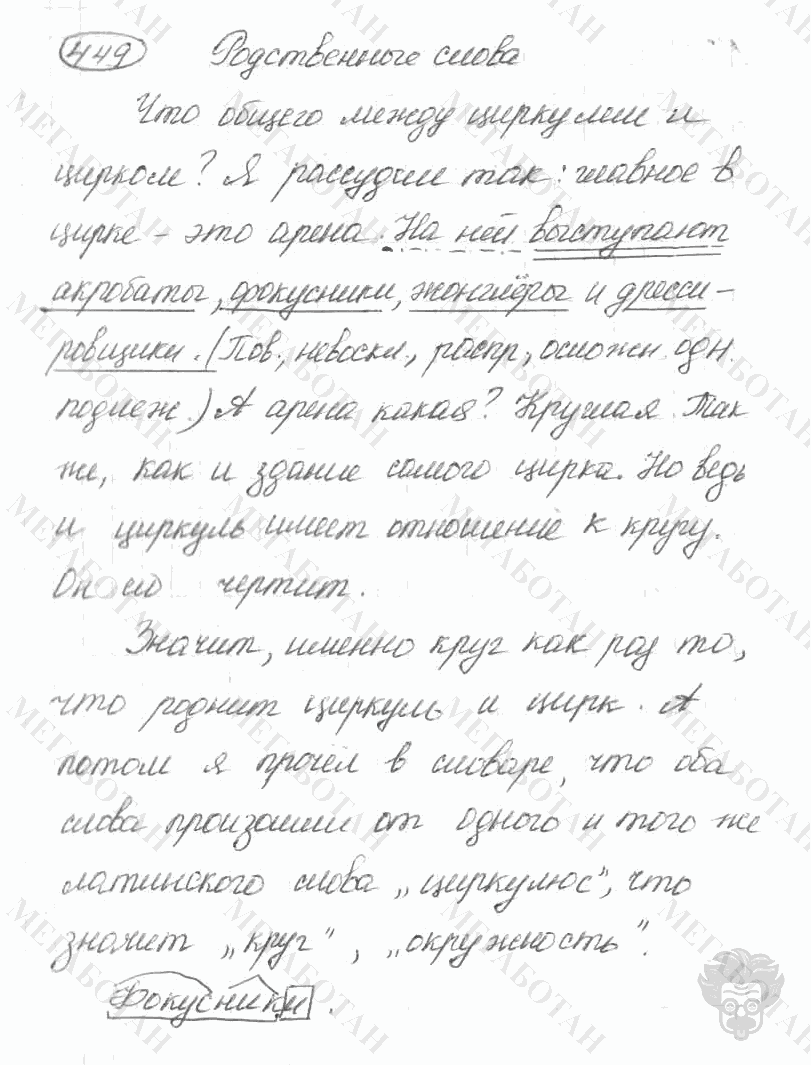 449 Родственные слова
Что общего между циркулем и
цирком? Я рассудил так: главное в
цирке – это арена. На ней выступают
акробаты, фокусники, жонглёры и дресси-
ровщики. (Пов., невоскл., распр., осложнен. одн.
подлеж.) А арена какая? Круглая. Так
же, как и здание самого цирка. Но ведь
и циркуль имеет отношение к кругу.
Он его чертит.
Значит, именно круг как раз то,
что роднит циркуль и цирк. А
потом я прочёл в словаре, что оба
слова произошли от одного и того же
латинского слова „циркулюс", что
значит „круг", „окружность".
Фокусники.
МЕГАБОТАН